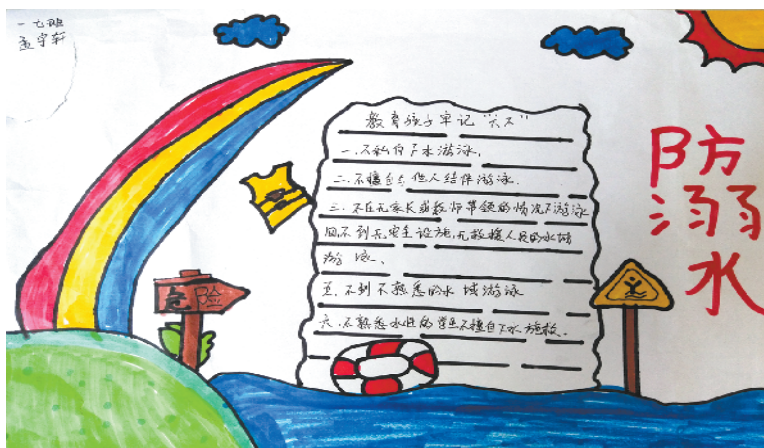 一七班
孟宇轩
教育孩子牢记“六不”
一.不私自下水游泳.
二.不擅自与他人结伴游泳.
三.不在无家长或教师带领的情况下游泳
四.不到无安全设施,无救援人员的水域
游泳.
五.不到不熟悉的水域游泳
六.不熟悉水性的学生不擅自下水施救.
危险
防
溺
水